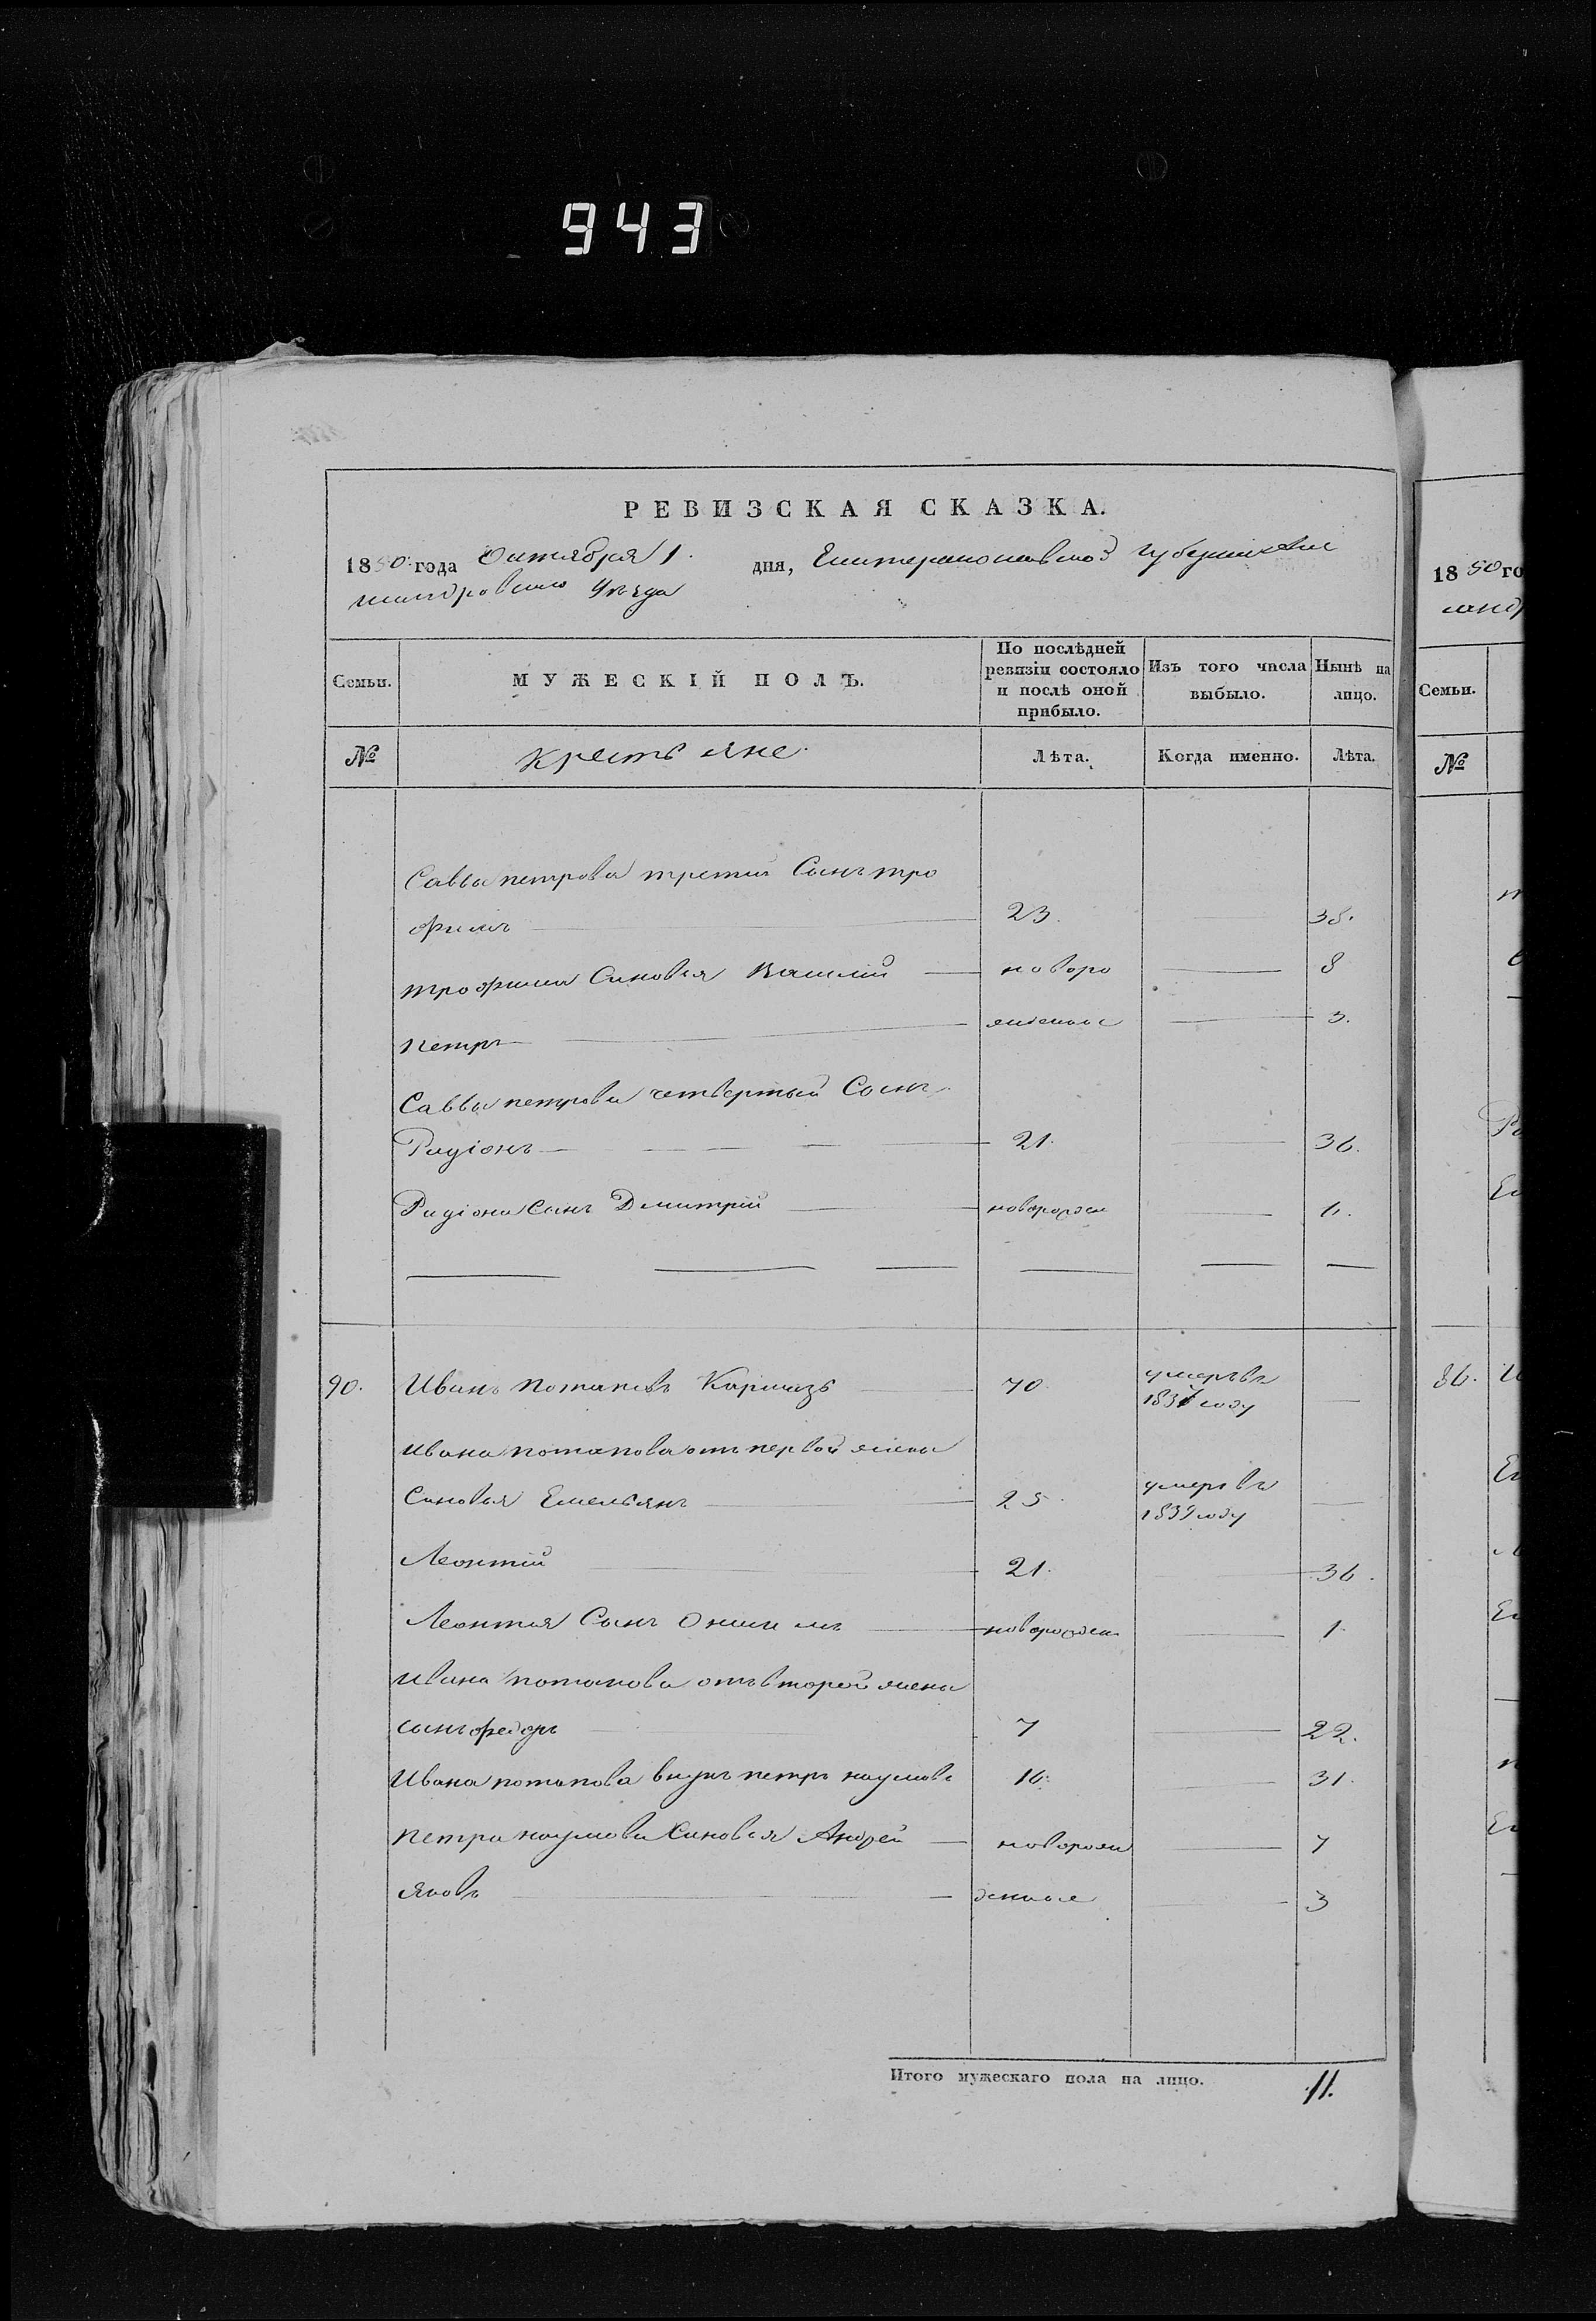 943
РЕВИЗСКАЯ СКАЗКА.
1850 года Октября 1. дня, Екатеринославской Губерніи Алек
сандровскаго Уѣзда
Семьи.
МУЖЕСКІЙ ПОЛЪ.
По послѣдней ревизіи состояло и послѣ оной прибыло.
Изъ того числа выбыло.
Нынѣ на лицо.
№
Крестьяне
Лѣта.
Когда именно.
Лѣта.
Саввы петрова третий Сынъ тро
фимъ 23. 38.
трофима Сыновья Василий новоро 8
петръ жденные 3.
Саввы петрова четвертый Сынъ
Радіонъ 21. 36.
Радіона Сынъ Дмитрий новорожден
90. Иванъ потаповъ Кармазь 70 умеръ въ
1837 году
Ивана потапова отъ первой жены
Сыновья Емельянъ 25 умеръ въ
1839 году
Леонтий 21. 36.
Леонтия Сынъ Онисимъ новорожден 1
Ивана потапова отъ второй жены
сынъ федоръ 7 22.
Ивана потапова внукъ петръ наумовъ 16. 31.
петра наумова Сыновья Андрей новорож 7
Яковъ денные 3
Итого мужескаго пола на лицо. 11.
1850 го
санд
Семьи.
№
86.